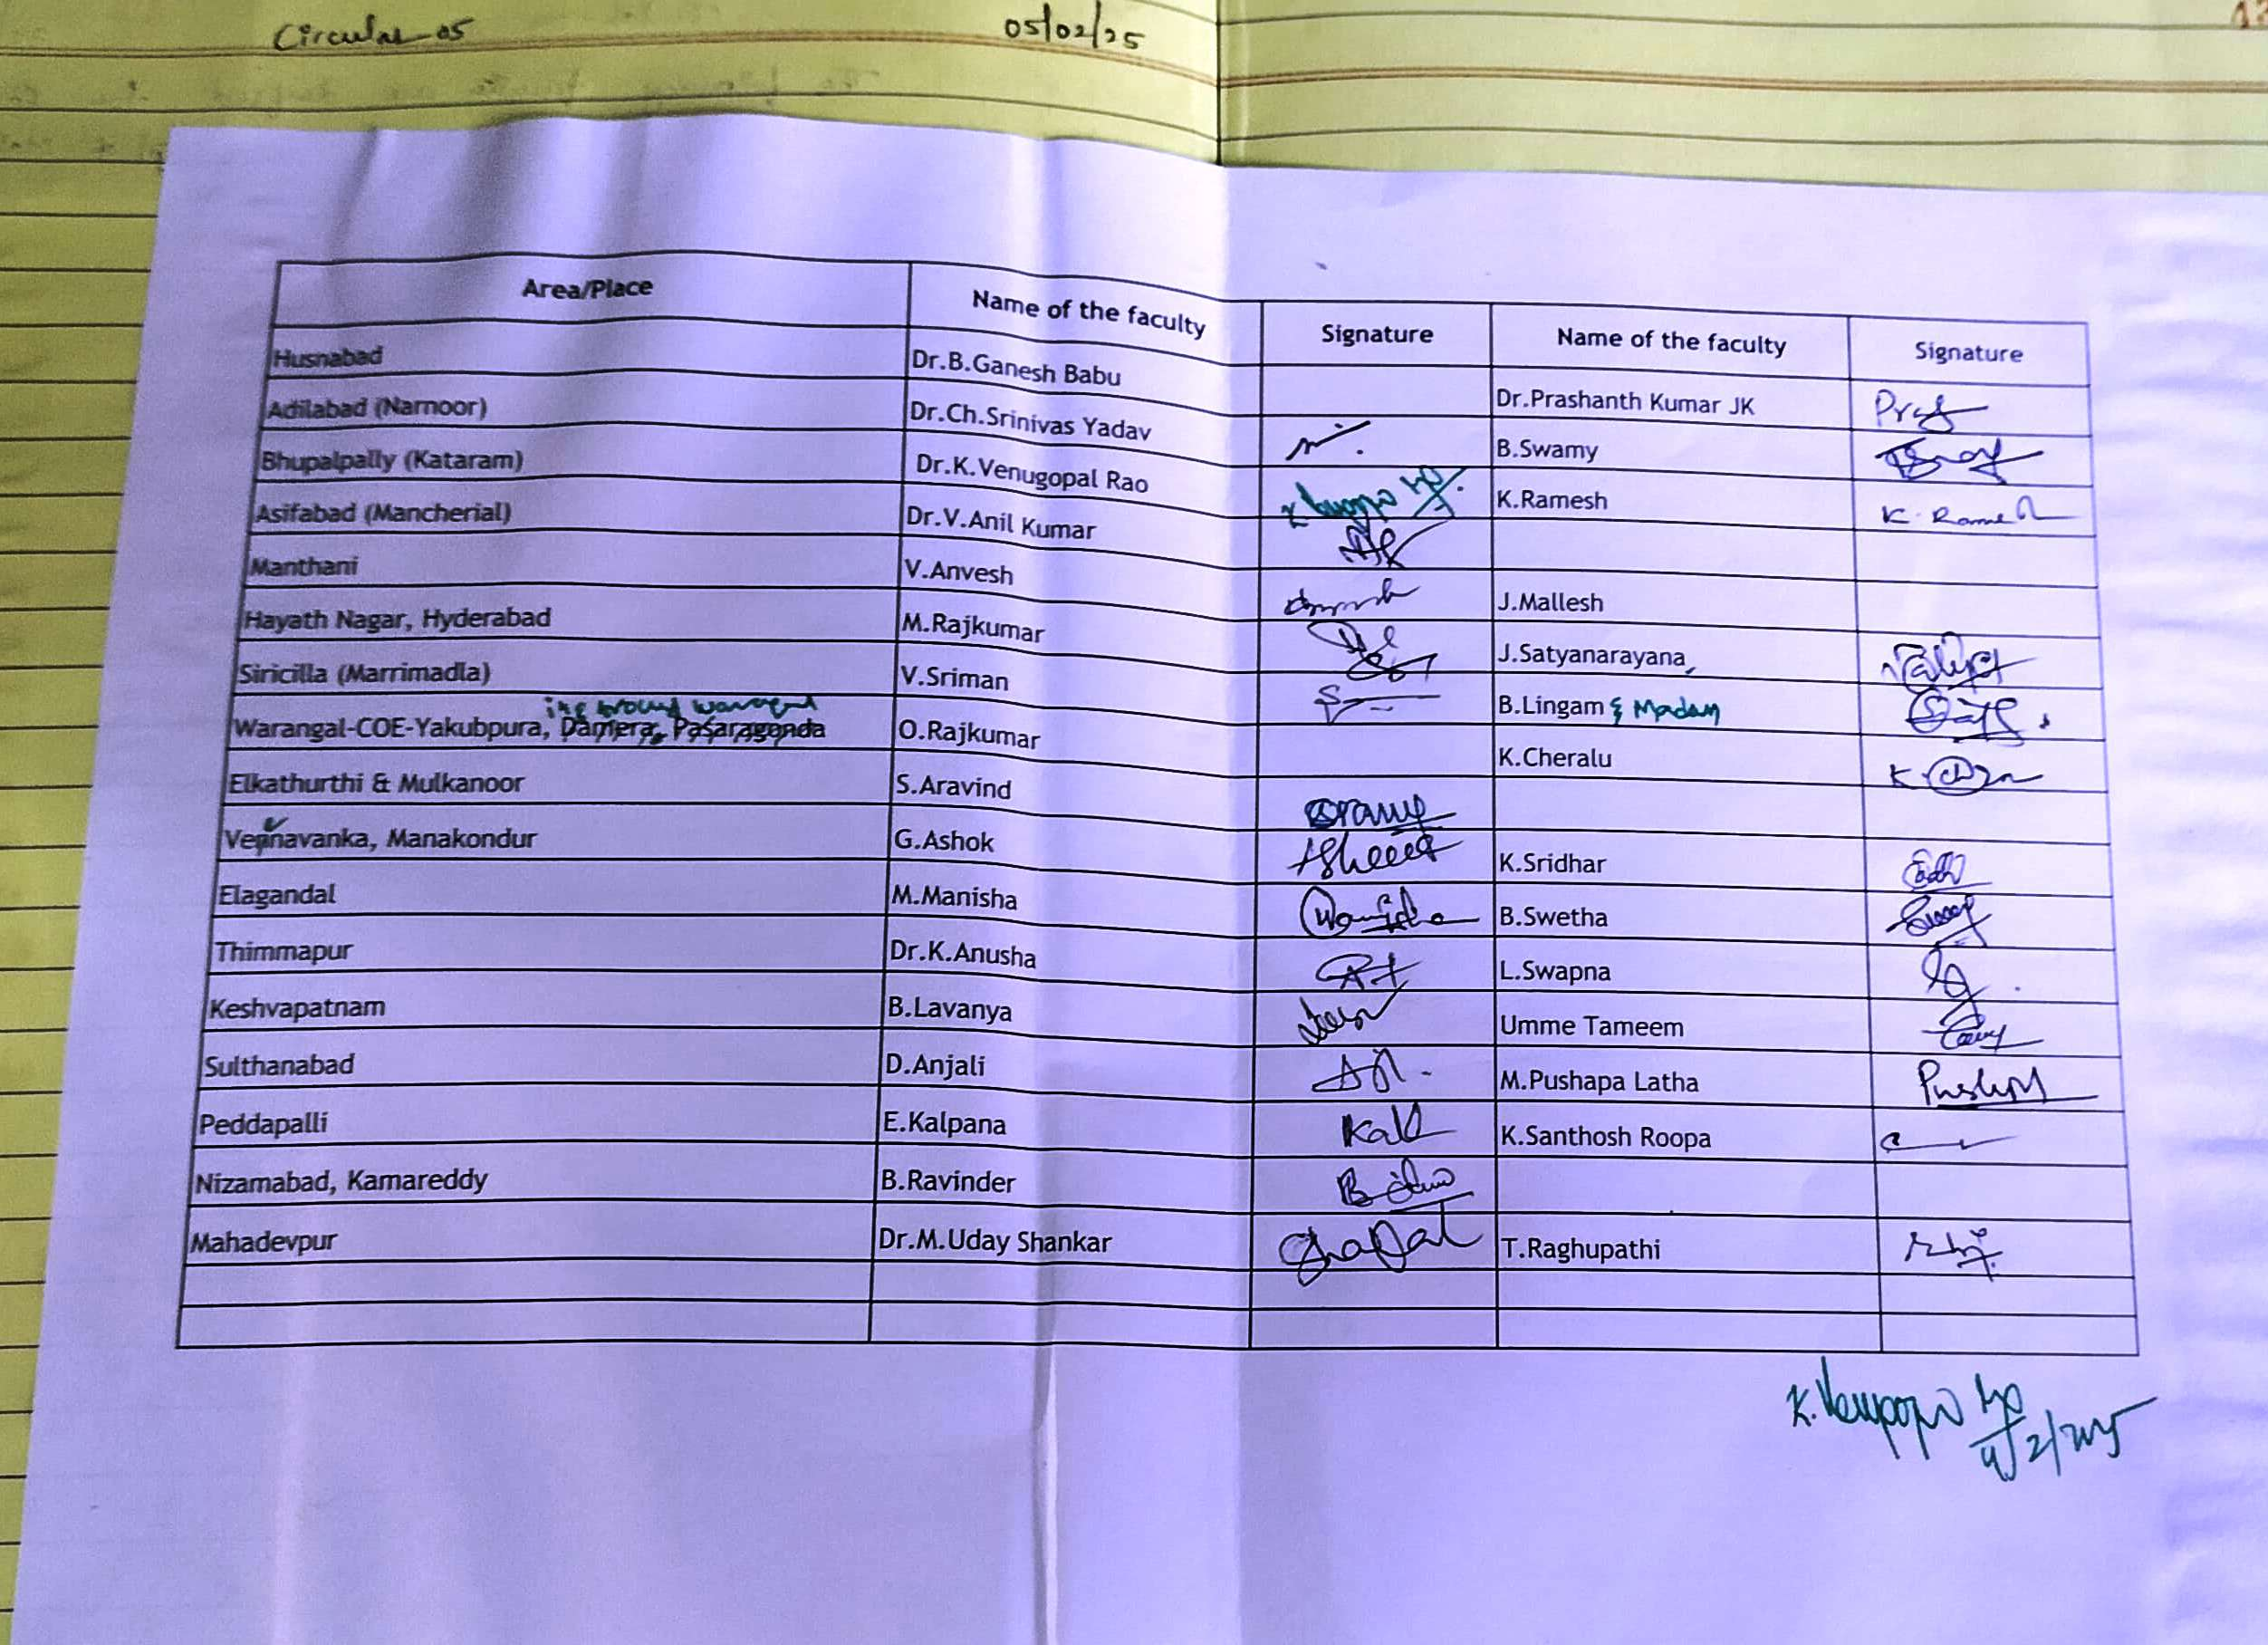 Circular-05 05/02/25
Area/Place Name of the faculty Signature Name of the faculty Signature
Husnabad Dr.B.Ganesh Babu Dr.Prashanth Kumar JK
Adilabad (Narnoor) Dr.Ch.Srinivas Yadav B.Swamy
Bhupalpally (Kataram) Dr.K.Venugopal Rao K.Ramesh K. Ramesh
Asifabad (Mancherial) Dr.V.Anil Kumar
Manthani V.Anvesh J.Mallesh
Hayath Nagar, Hyderabad M.Rajkumar J.Satyanarayana,
Siricilla (Marrimadla) V.Sriman B.Lingam & Madam
Warangal-COE-Yakubpura, Damera, Pasaragonda O.Rajkumar K.Cheralu
Elkathurthi & Mulkanoor S.Aravind
Veenavanka, Manakondur G.Ashok K.Sridhar
Elagandal M.Manisha Manisha B.Swetha
Thimmapur Dr.K.Anusha L.Swapna
Keshvapatnam B.Lavanya Umme Tameem
Sulthanabad D.Anjali M.Pushapa Latha
Peddapalli E.Kalpana K.Santhosh Roopa
Nizamabad, Kamareddy B.Ravinder
Mahadevpur Dr.M.Uday Shankar T.Raghupathi